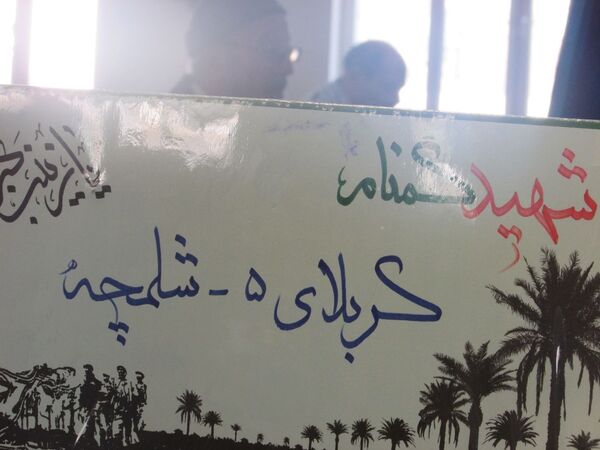 شهید گمنام
کربلای ۵ - شلمچه